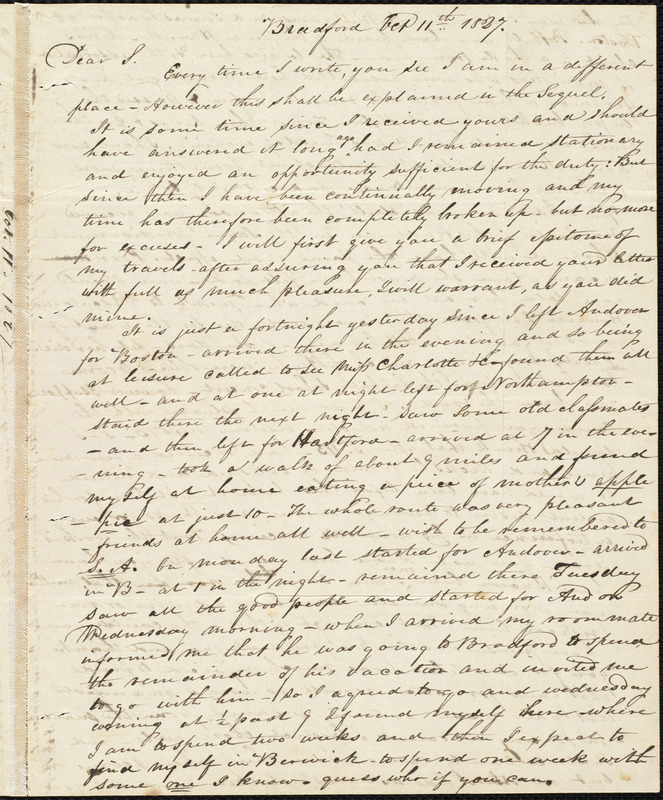 Bradford Feb 11th 1827.
Dear S.
Every time I write, you see I am in a different
place - However this shall be explained in the Sequel.
It is some time since I received yours and should
have answered it long ago had I remained stationary
and enjoyed an opportunity sufficient for the duty: But
since then I have been continually moving and my
time has therefore been completely broken up - but no more
for excuses - I will first give you a brief epitome of
my travels - after assuring you that I received your letter
with full as much pleasure, I will warrant, as you did
mine.
It is just a fortnight yesterday since I left Andover
for Boston - arrived there in the evening and so being
at leisure called to see Miss Charlotte &c - found them all
well - and at one at night left for Northampton -
staid there the next night - saw some old classmates
- and then left for Hartford - arrived at 7 in the eve-
ning - took a walk of about 9 miles and found
myself at home eating a piece of mother's apple
pie at just 10 - The whole route was very pleasant
friends at home all well - wish to be remembered to
S. A. On monday last started for Andover - arrived
in B - at 1 in the night - remained there Tuesday
saw all the good people and started for And on
Wednesday morning - when I arrived my roommate
informed me that he was going to Bradford to spend
the remainder of his vacation and invited me
to go with him - so I agreed to go and wednesday
evening at ½ past 9 I found myself here where
I am to spend two weeks and then I expect to
find myself in Berwick - to spend one week with
some one I know - guess who if you can.
Feb. 11. 182